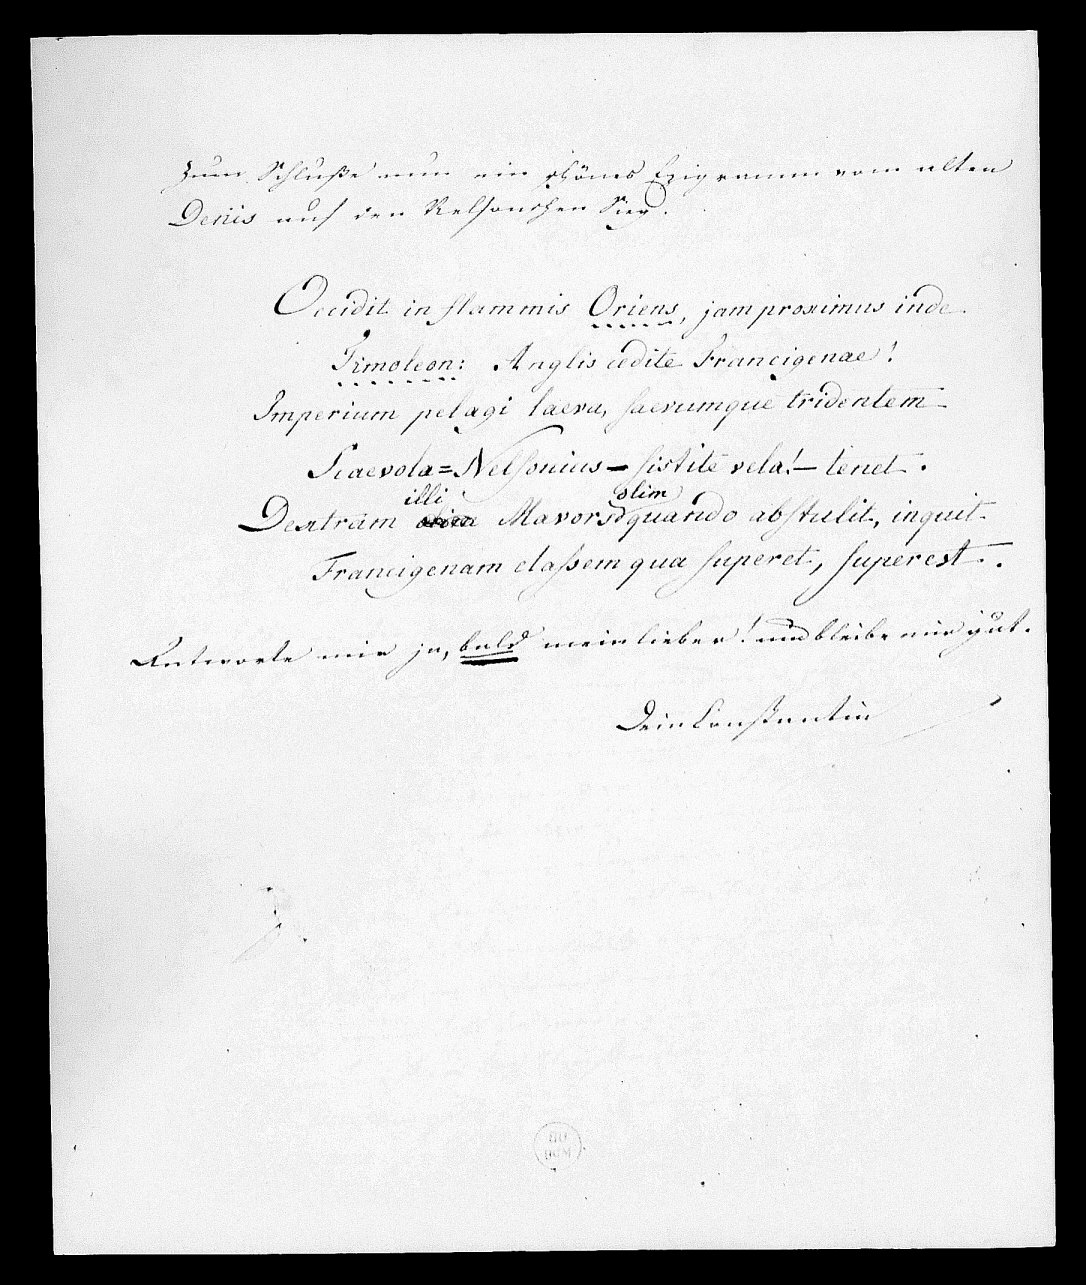 Zum Schluße nun ein schönes Epigramm vom alten
Denis auf den Nelsonschen Sieg.
Occidit in flammis Oriens, jam proximus inde
Timoleon: Anglis cedite Francigenae!
Imperium pelagi laeva, saevumque tridentem
Scaevola=Nelsonius – sistite vela! – tenet.
illi olim
Dextram olim Mavors quando abstulit, inquit
Francigenam classem qua superet, superest.
Antworte mir ja, bald mein lieber! und bleibe mir gut.
Dein Constantin